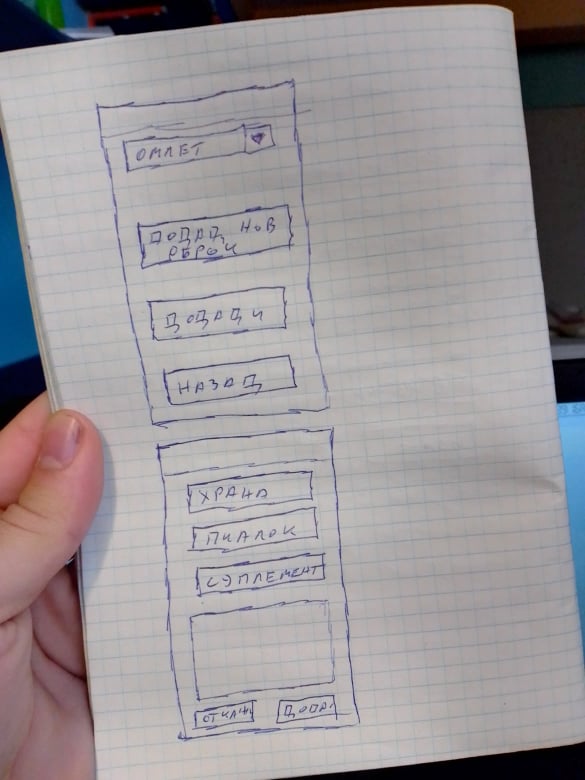 ОМЛЕТ
ДОДАЦ НОВ
ОБРОК
ДОДАЦИ
НАЗАД
ХРАНА
СУПЛЕМЕНТ
ОТКАЖ
ДОДА